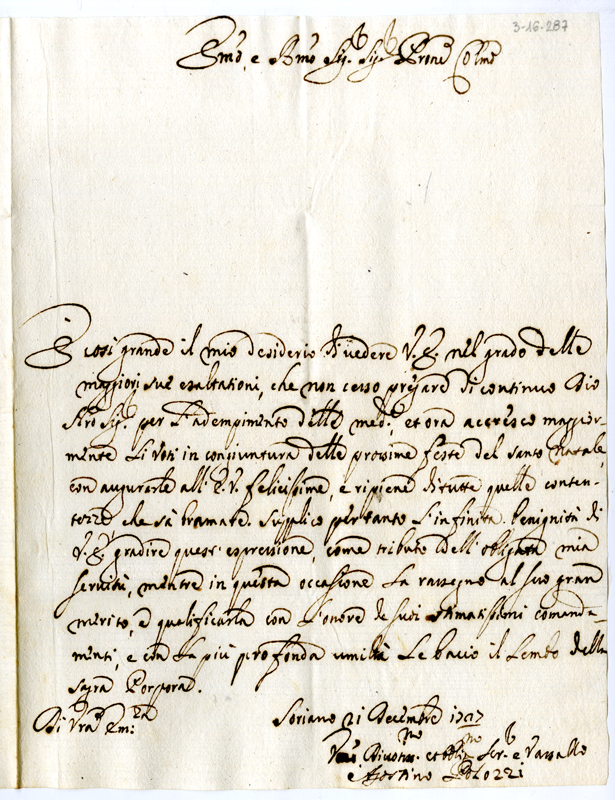 3-16-287
Em̃o, e Rm̃o Sig.r Sig.r Prone Colmo
È così grande il mio desiderio di vedere V. E. nel grado delle
maggiori sue esaltationi, che non cesso pregare di continuo Dio
Nro Sig.re per l'adempimento delle med.e, et ora accresco maggior-
mente li voti in congiuntura delle prossime feste del Santo Natale,
con augurarle all' E. V. felicissime, e ripiene di tutte quelle conten-
tezze che sà bramare. Supplico pertanto l'infinita benignità di
V. E. gradire questi espressione, come tributo dell' obligata mia
servitù, mentre in questa occasione la rassegno al suo gran
merito, e qualificarla con l'onore de suoi stimatissimi comanda-
menti, e con la più profonda umiltà le bacio il lembo della
sagra Porpora.
Di Vra Em:za
Soriano 21 Decembre 1717
Umo. Divotmo. et Obligmo Ser.e e Vassallo
Agostino Polozzi